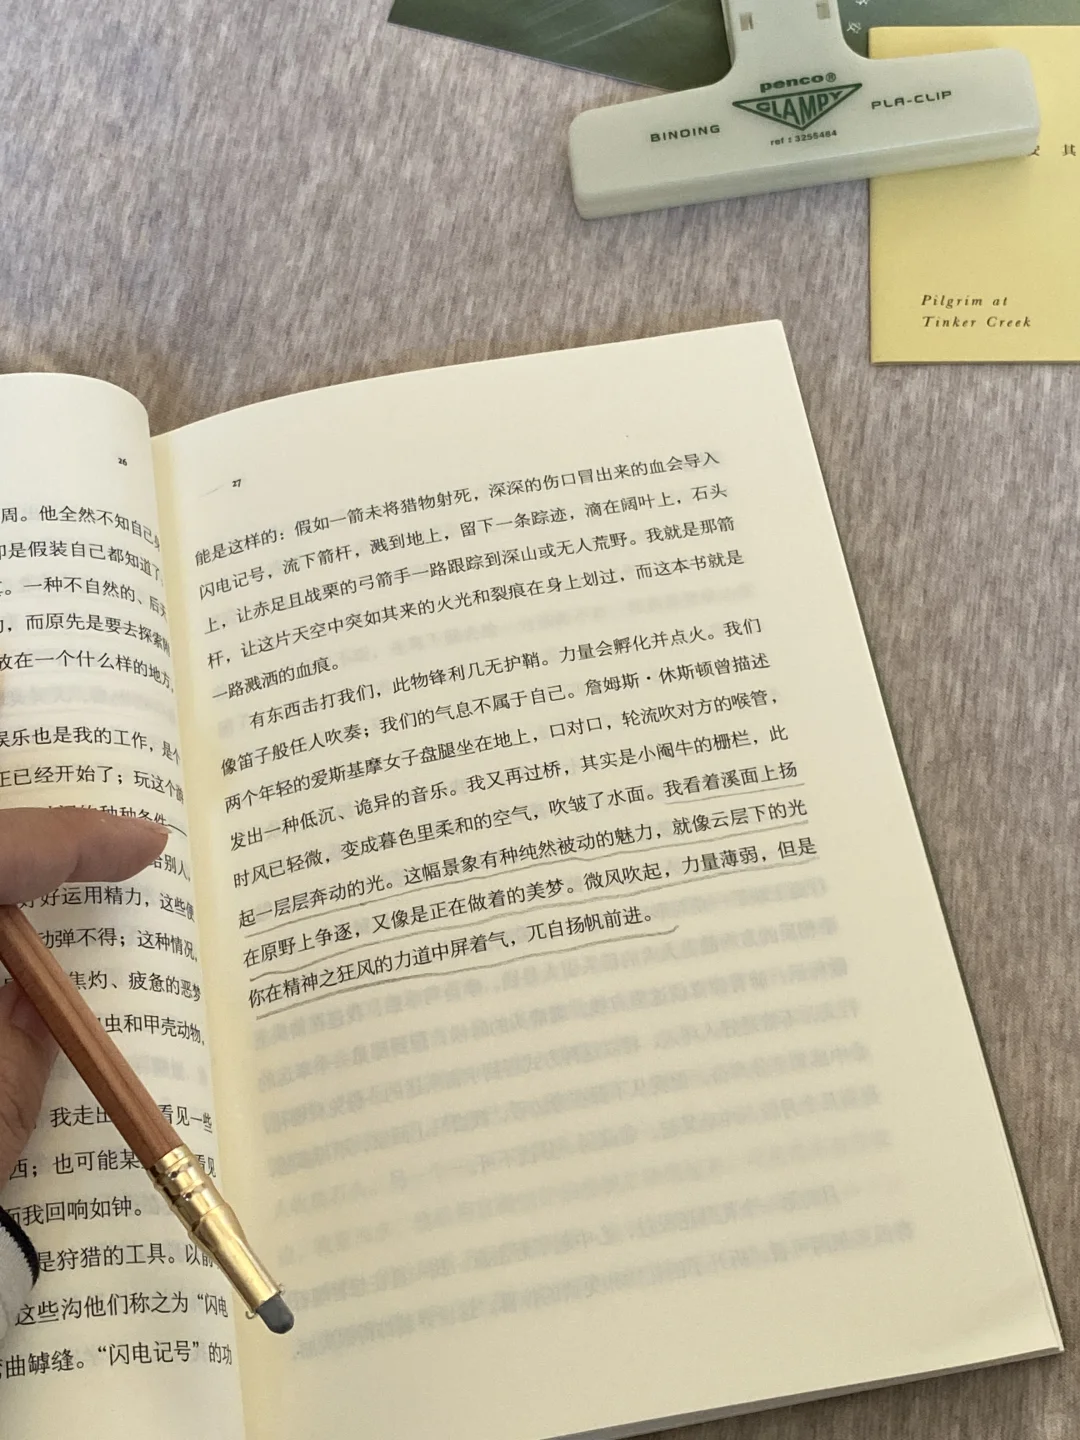 penco®
CLAMPY
BINDING
PLA-CLIP
ref : 3255484
安 其
Pilgrim at
Tinker Creek
26
周。他全然不知自己身
却是假装自己都知道了
。一种不自然的、后天
，而原先是要去探索附
放在一个什么样的地方，
娱乐也是我的工作，是个
正已经开始了；玩这个游
种种条件
给别人，
好好运用精力，这些便
动弹不得；这种情况，
焦灼、疲惫的恶梦
虫和甲壳动物，
我走出 看见一些
西；也可能某 看见
而我回响如钟。
是狩猎的工具。以前
这些沟他们称之为“闪电
弯曲罅缝。“闪电记号”的功
27
能是这样的：假如一箭未将猎物射死，深深的伤口冒出来的血会导入
闪电记号，流下箭杆，溅到地上，留下一条踪迹，滴在阔叶上，石头
上，让赤足且战栗的弓箭手一路跟踪到深山或无人荒野。我就是那箭
杆，让这片天空中突如其来的火光和裂痕在身上划过，而这本书就是
一路溅洒的血痕。
有东西击打我们，此物锋利几无护鞘。力量会孵化并点火。我们
像笛子般任人吹奏；我们的气息不属于自己。詹姆斯·休斯顿曾描述
两个年轻的爱斯基摩女子盘腿坐在地上，口对口，轮流吹对方的喉管，
发出一种低沉、诡异的音乐。我又再过桥，其实是小阉牛的栅栏，此
时风已轻微，变成暮色里柔和的空气，吹皱了水面。我看着溪面上扬
起一层层奔动的光。这幅景象有种纯然被动的魅力，就像云层下的光
在原野上争逐，又像是正在做着的美梦。微风吹起，力量薄弱，但是
你在精神之狂风的力道中屏着气，兀自扬帆前进。